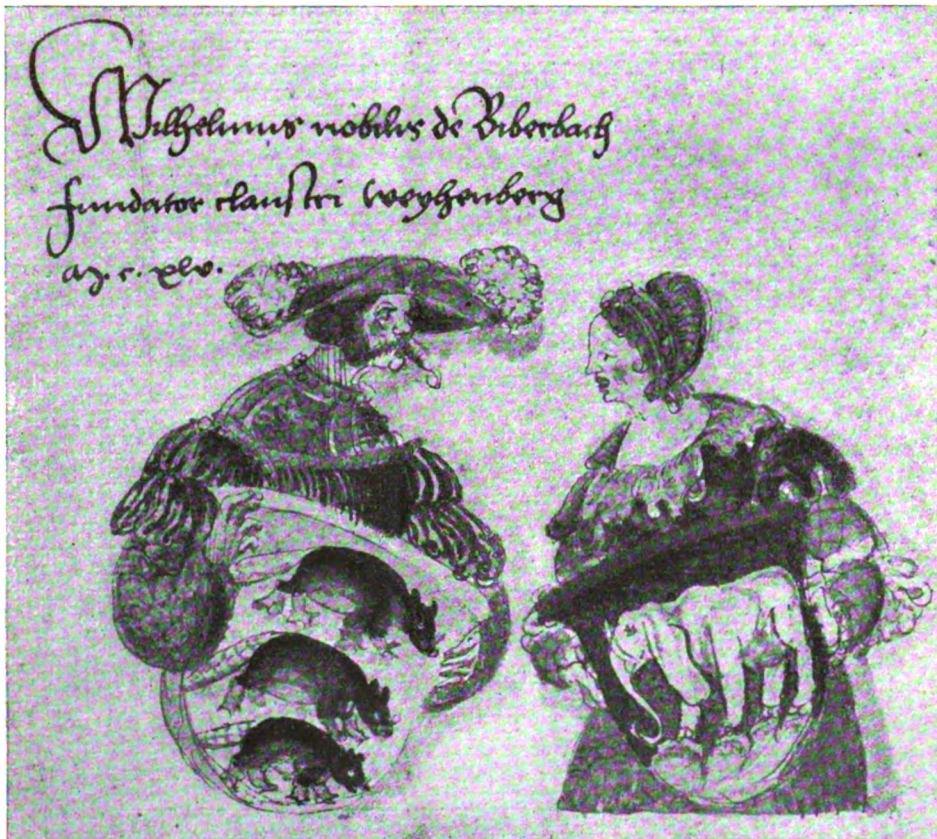 Wilhelmus nobilis de Biberbach
fundator claustri weyhenberg